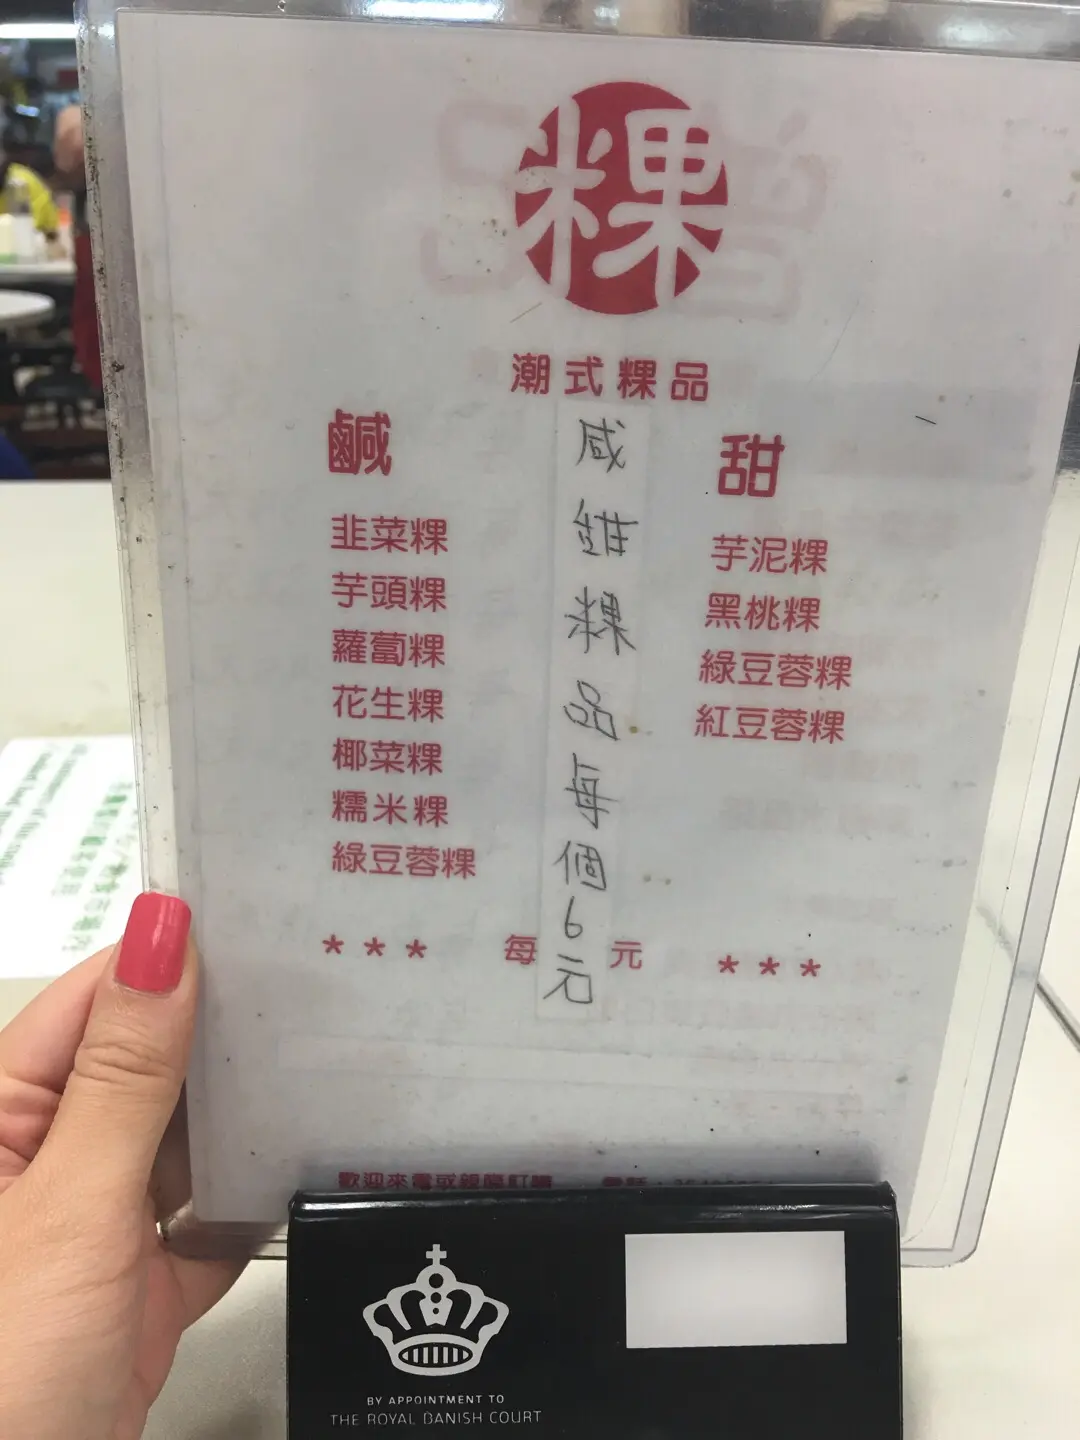 粿
潮式粿品
鹹
韭菜粿
芋頭粿
蘿蔔粿
花生粿
椰菜粿
糯米粿
綠豆蓉粿
咸甜粿品每個6元
甜
芋泥粿
黑桃粿
綠豆蓉粿
紅豆蓉粿
*** 每 元 ***
歡迎來電或親臨訂購 電話：
BY APPOINTMENT TO
THE ROYAL DANISH COURT